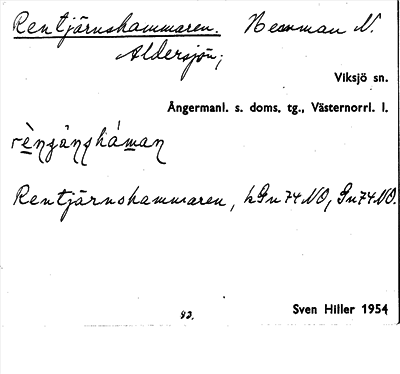 Rentjärnshammaren. Hemman N.
Aldersjön;
Viksjö sn.
Ångermanl. s. doms. tg., Västernorrl. l.
Rentjärnshammaren, kGn74NO, Gn74NO.
82.
Sven Hiller 1954